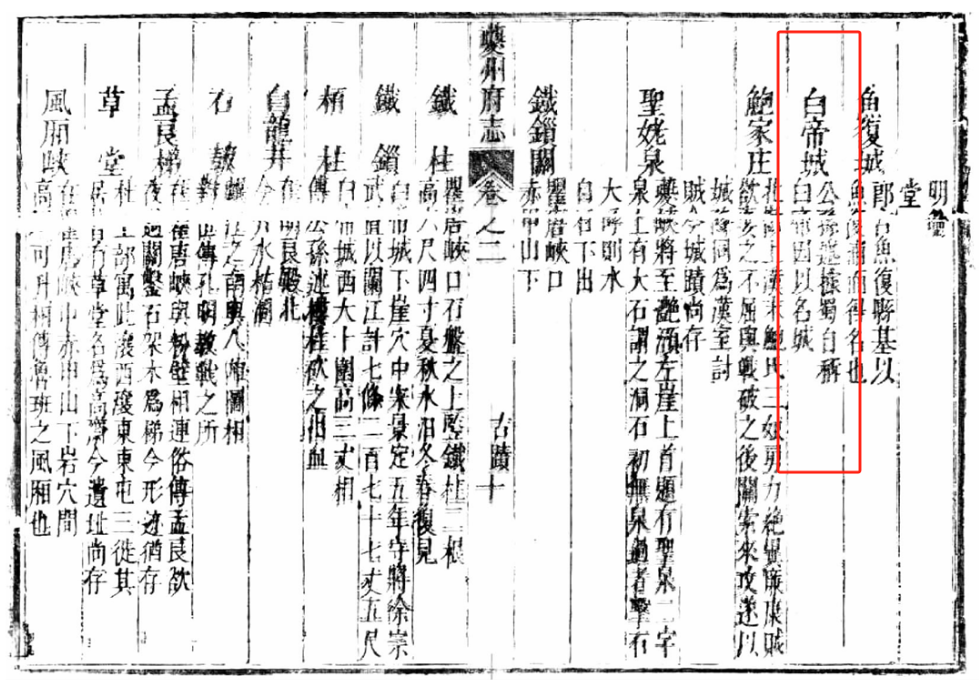 明
堂
魚復城
郎 魚復縣基以
魚復浦而得名也
白帝城
公孫述據蜀自稱
白帝因以名城
鮑家庄
北 上漢末鮑氏三娘勇力絶異廉康賊
欲妻之不屈與戰破之後關索來攻遂以
城 同爲漢室討
賊今城蹟尚存
聖姥泉
夔峽將至灔澦左崖上首題有聖泉二字
泉上有大石謂之洞石初無泉過者擊石
大呼則水
自石下出
鐵鎖關
瞿唐峽口
赤甲山下
夔州府志
卷之二
古蹟
十
鐵柱
瞿唐峽口石盤之上豎鐵柱二根
高六尺四寸夏秋水汩冬春復見
鐵鎖
白帝城下崖穴中宋景定五年守將徐宗
武 以闌江計七條二百七十七丈五尺
栢柱
白帝城西大十圍高三丈相
傳公孫述樓柱砍之 血
白龍井
在 明良殿北
今 水枯涸
石
之南與八陣圖相
對 傳孔明教戰之所
孟良梯
在瞿唐峽與粉壁相連俗傳孟良欲
夜過關鑿石架木爲梯今形迹猶存
草堂
杜工部寓此瀼西瀼東東屯三徙其
居 有草堂名爲高齋今遺址尚存
風厢峽
在 峽中赤甲山下岩穴間
高 可升相傳魯班之風厢也